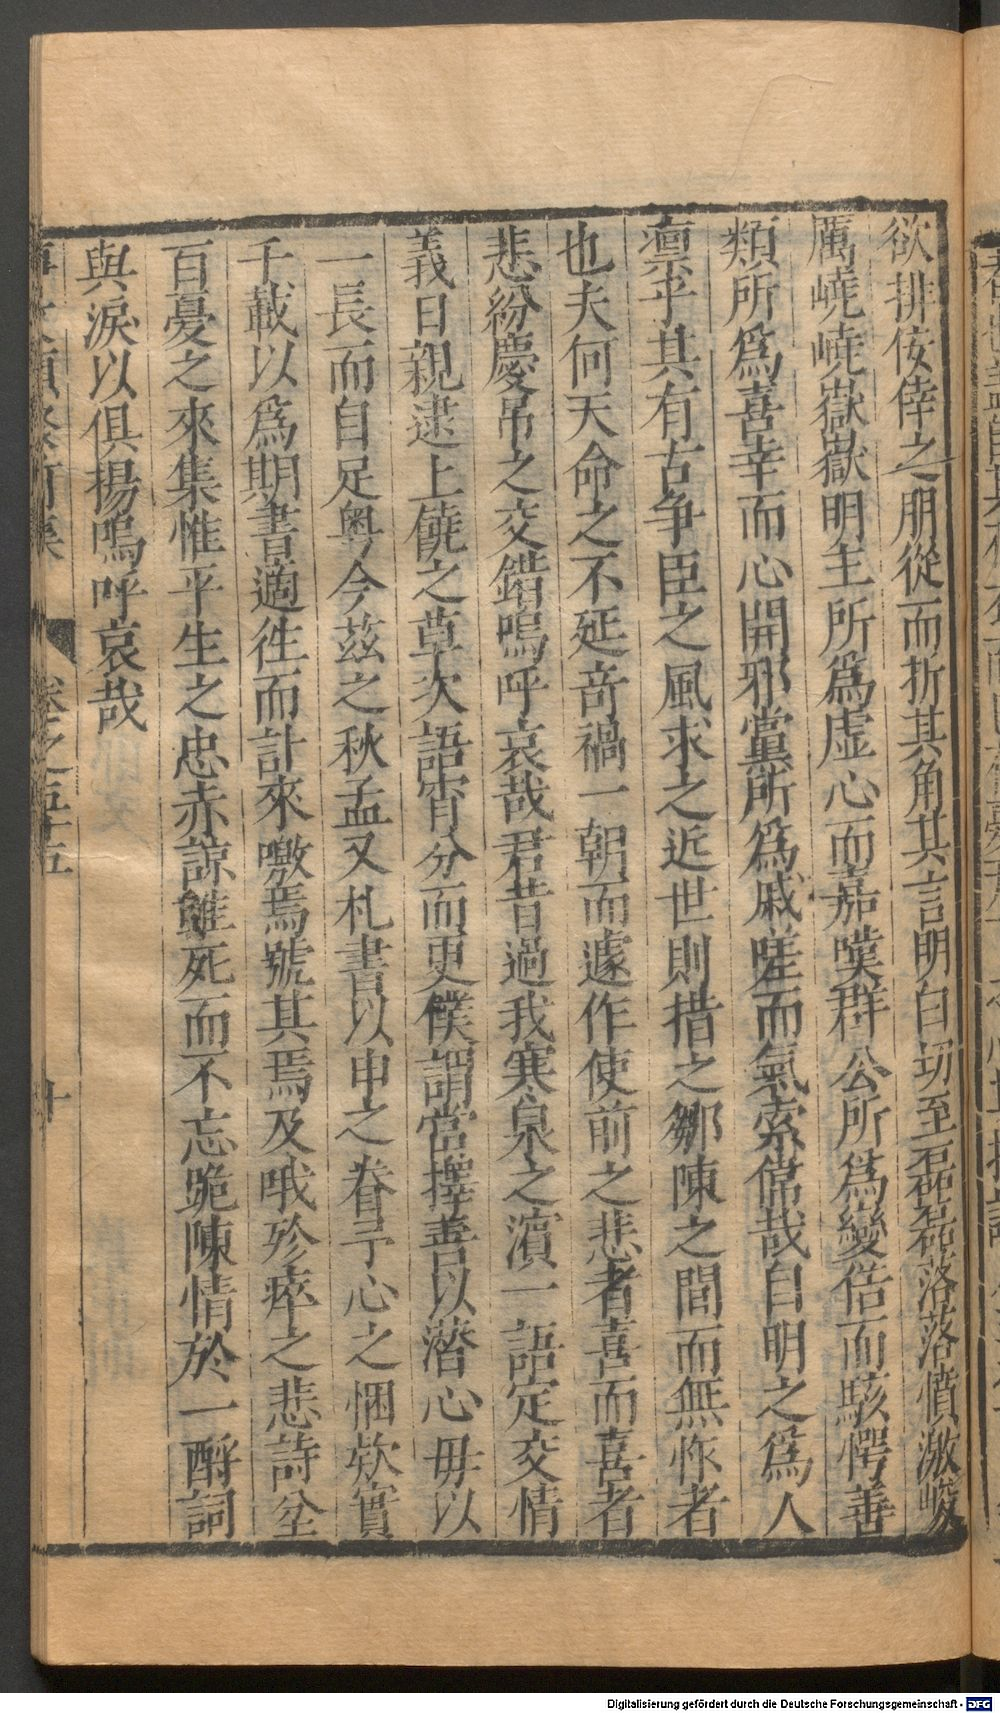 欲排佞倖之朋從而折其角其言明白切至磊磊落落憤激峻
厲嶢嶢嶽嶽明主所為虛心而嘉嘆群公所為變倍而駭愕善
類所為喜幸而心開邪黨所為戚嗟而氣索儻哉自明之為人
凛乎其有古争臣之風求之近世則措之鄒陳之間而無怍者
也夫何天命之不延奇禍一朝而遽作使前之悲者喜而喜者
悲紛慶吊之交錯嗚呼哀哉君昔過我寒泉之濱一語定交情
義日親逮上饒之草次語宵分而更僕謂當擇善以潛心毋以
一長而自足粤今茲之秋孟又札書以申之眷予心之悃欵實
千載以為期書適徃而計來噭焉號其焉及哦殄瘁之悲詩坌
百憂之來集惟平生之忠赤諒雖死而不忘跪陳情於一酹詞
與淚以俱揚嗚呼哀哉
卷之五十五
十
Digitalisierung gefördert durch die Deutsche Forschungsgemeinschaft - DFG